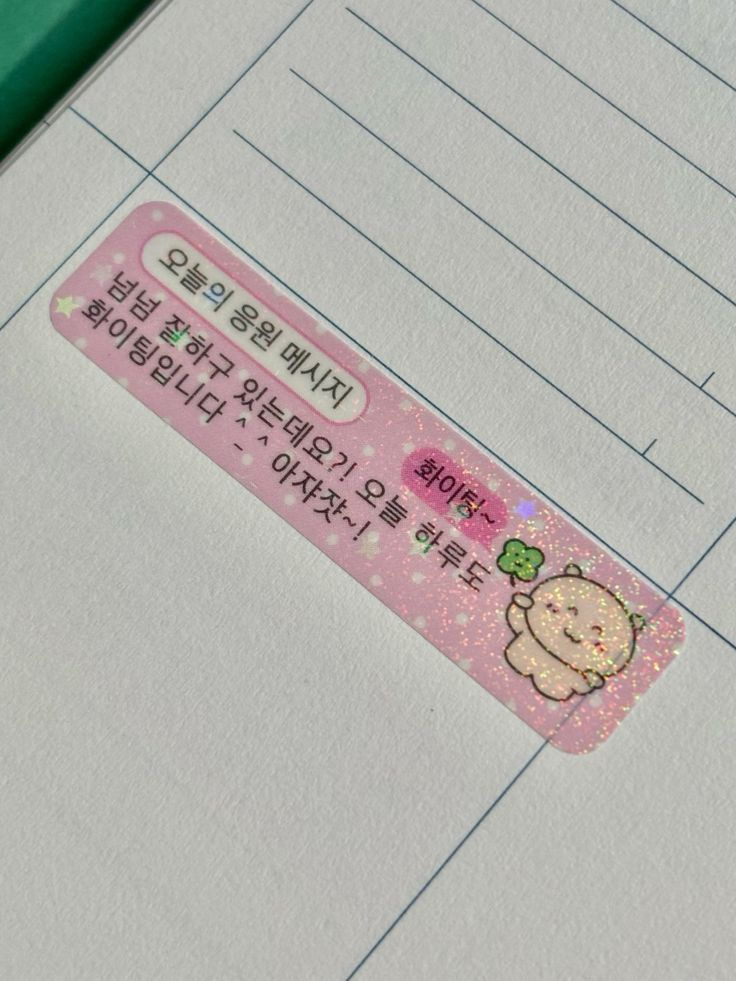 오늘의 응원 메시지
넘넘 잘하구 있는데요?! 오늘 하루도
화이팅입니다 ^_^ 아쟈쟛~!
화이팅~